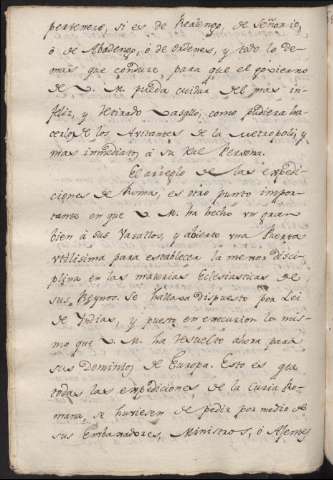 pertenece, si es de Realengo, de Señorío,
ó de Abadengo, ó de ordenes, y todo lo de-
mas que conduce, para que el govierno
de V. M. pueda cuidar del mas in-
feliz, y retirado Vasallo, como pudiera ha-
cerlo de los Avitantes de la Metropoli, y
mas inmediatos á su Real Persona.
El arreglo de las expedi-
ciones de Roma, es otro punto impor-
tante en que V. M. ha hecho un gran
bien á sus Vasallos, y abierto una Puerta
utilisima para establecer la menor disci-
plina en las materias Eclesiasticas de
sus Reynos. Se hallava dispuesto por Lei
de Yndias, y puesto en execucion lo mis-
mo que V. M. ha resuelto ahora para
sus Dominios de Europa. Esto es que
todas las expediciones de la Curia Ro-
mana, se huviesen de pedir por medio de
sus Embaxadores, Ministros, ó Agentes